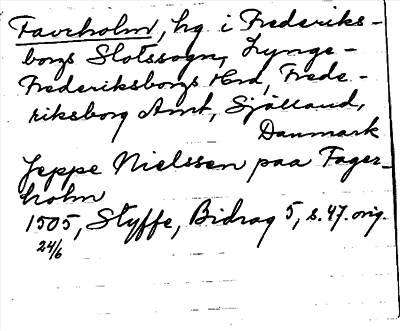 Favrholm, hg. i Frederiks-
borgs Slotssogn, Lynge-
Frederiksborgs Hrd, Frede-
riksborg Amt, Själland,
Danmark
Jeppe Nielssen paa Fager-
holm
1505, Styffe, Bidrag 5, s. 47. orig.
24/6